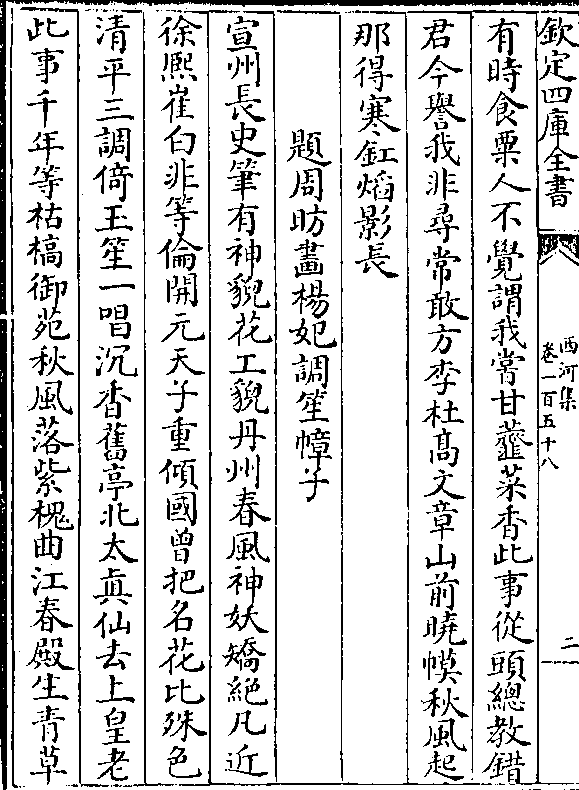 欽定四庫全書
西河集
卷一百五十八
二
有時食粟人不覺謂我嘗甘虀菜香此事從頭總教錯
君今譽我非尋常敢方李杜高文章山前曉幙秋風起
那得寒釭熖影長
題周昉畫楊妃調笙幛子
宣州長史筆有神貌花工貌丹州春風神妖矯絕凡近
徐熙崔白非等倫開元天子重傾國曾把名花比殊色
清平三調倚玉笙一唱沉香舊亭北太真仙去上皇老
此事千年等枯槁御苑秋風落紫槐曲江春殿生青草